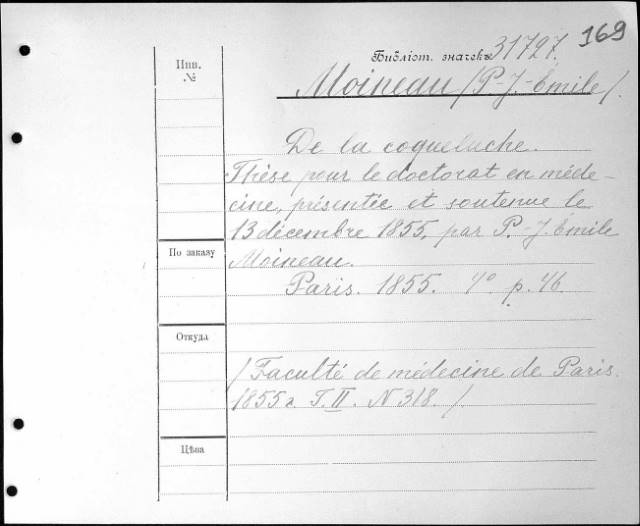 169
Инв.
№
Библіот. значекъ 31727.
Moineau /P.-J.-Émile/.
De la coqueluche.
Thèse pour le doctorat en méde-
cine, présentée et soutenue le
13 décembre 1855, par P.-J. Émile
Moineau.
Paris. 1855. 4° p. 46.
По заказу
Откуда
/Faculté de médecine de Paris.
1855 г. T. II. N 318. /.
Цѣна